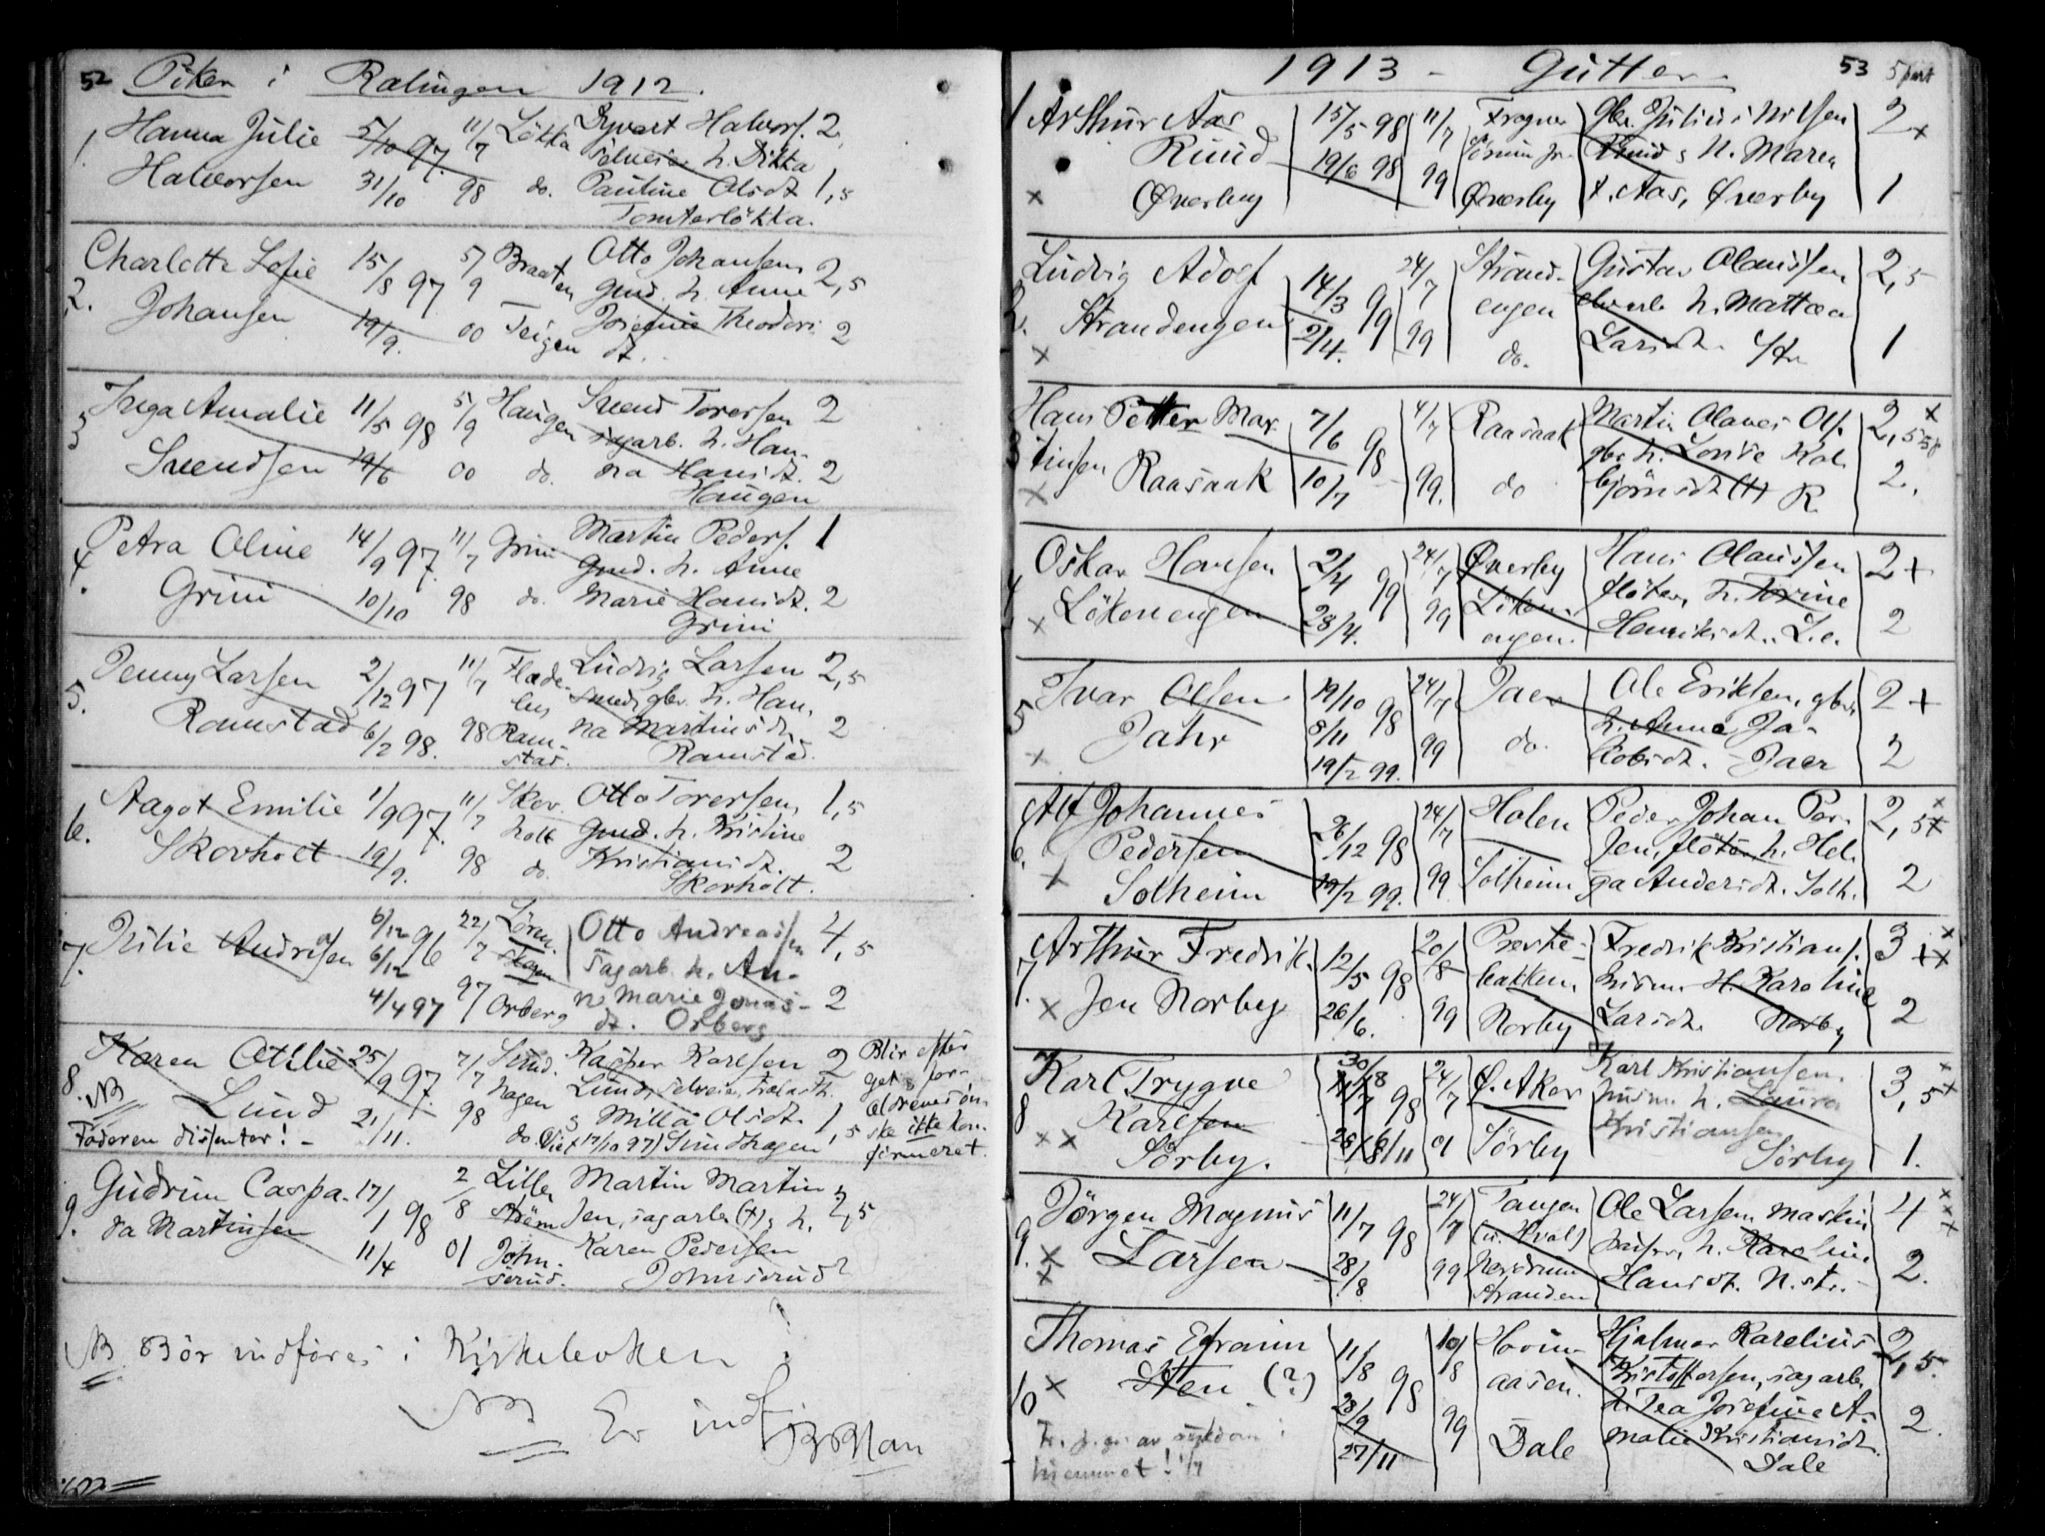 52 Piker i Rælingen 1912.
1. Hanna Julie 5/10 97. 11/7 Løkka Syvert Halvors. 2
selveier h. Dikka
Halvorsen 31/10 98 do. Pauline Olsdt. 1,5
Tomterløkka.
Charlotte Sofie 15/8 97 5/9 Braaten Otto Johansen 2,5
2. gmd. h. Anne
Johansen 19/9. 00 Teigen Josefine Theodors 2
dt.
3 Inga Amalie 11/5 98 5/9 Haugen Svend Toresen 2
sagarb. h. Han-
Svendsen 19/6 00 do. na Hansdt. 2
Haugen
4. Petra Oline 14/9 97. 11/7 Grini Martin Peders. 1
gmd. h. Anne
Grini 10/10 98 do. Marie Hansdt. 2
Grini
5. Jenny Larsen 2/12 97 11/7 Fladeby Ludvig Larsen 2,5
smed, gbr. h. Han-
Ramstad 6/2 98. 98 Ramstad. na Martinsdt. 2
Ramstad.
6. Aagot Emilie 1/9 97. 11/7 Skovholt Otto Toresen, 1,5
gmd. h. Kristine
Skovholt 19/9. 98 do. Kristiansdt. 2
Skovholt.
7. Julie Andrsen 6/12 96 22/7 Otto Andreassen 4,5
6/12 sagarb. h. An-
4/4 97 97 Orberg ne Marie Jonas- 2
dt. Orberg
8. Karen Othlie 25/9 97. 7/7 Sundhagen Kasper Karlsen 2 Blir efter
NB Lund, selveier get s for-
Lund 21/11. 98 s Milla Olsdt. 1,5 ældrenes øn-
Faderen disenter! - do. (Viet 17/10 97) Sundhagen ske ikke kon-
firmeret.
9. Gudrun Caspa- 17/1 98 2/8 Lille Martin Martin- 2,5
da Martinsen strøm sen, sagarb. (+), h.
11/4 01 Johnserud. Karen Pedersen
Johnserud 2
NB Bør indføres i Kirkeboken!
NB Er indf.
1913 - Gutter - 53
1 Arthur Aas 15/5 98 11/7 Frogner gbr. Julius Nilsen 2 x
Ruud 19/6 98 Ruud s H. Maren
x Øverby 99 Øverby f. Aas, Øverby 1
Ludvig Adolf 14/3 99 24/7 Strandengen Gustav Olaussen 2,5
2. Strandengen elvearb. h. Mathea
x 2/4. 99 do. Larsdt. Str. 1
Hans Petter Mar- 7/6 98 4/7 Raasaak Martin Olaves Ols. 2,5 x
3 tinsen gbr. h. Lovise Kol-
x Raasaak 10/7 99. do bjørnsdt. (+) R. 2.
4 Oskar Hansen 2/4 99 24/7 Øverby Hans Olaussen 2 +
Løkenengen fløter, h. Torine
x 28/4. 99 Løkenengen. Henriksdt. L.e. 2
5 Ivar Olsen 19/10 98 24/7 Jaer Ole Eriksen, gbr. 2 +
Jahr 8/11 h. Anna Ja-
x 19/2 99. 99 do. kobsdt. Jaer 2
6. Alf Johannes 26/12 98 24/7 Holen Peder Johan Per- 2,5 x
Pedersen sen, fløter h. Hel-
x Solheim 19/2 99. 99 Solheim ga Andersdt. Solh. 2
7. Arthur Fredrik- 12/5 98 20/8 Prestebakken Fredrik Kristians. 3 + x
husm. H. Karoline
x sen Norby 26/6. 99 Norby Larsdt. Norby 2
8 Karl Trygve 98 24/7 Ø. Aker Karl Kristiansen 3,5 x
Karlsen husm. h. Laura
x x Sørby. 01 Sørby Kristiansen
Sørby 1.
9. Jørgen Magnus 11/7 98 24/7 Tangen Ole Larsen maskin 4 x x x
x (u. Hval) passer, h. Karoline
x Larsen 28/8 99 Nordrum stranden Hansdt. N.str. 2.
Thomas Efraim 11/8 98 10/8 Hovinaasen. Hjalmar Karelius 2,5.
10 x Sten (?) Kristoffersen, sagarb.
28/9 99 h. Tea Josefine A- 2.
27/11 Dale malie Kristiansdt.
av sykdom i Dale
hjemmet! 1/7